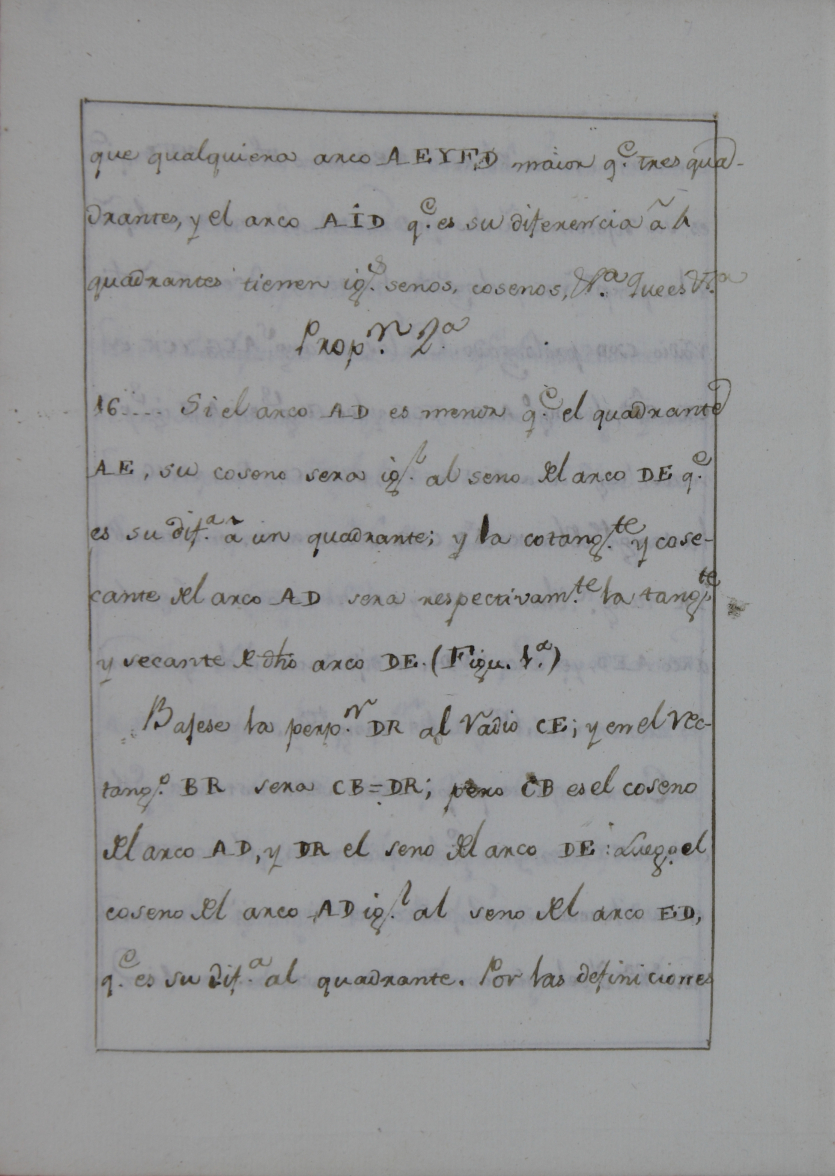 que qualquiera arco AEYFD maior q.e tres qua-
drantes, y el arco AID q.e es su diferencia à 4
quadrantes tienen ig.s senos, cosenos, &.a Que es &.a
Prop.n 2.a
16.... Si el arco AD es menor q.e el quadrante
AE, su coseno sera ig.l al seno del arco DE q.e
es su dif.a à un quadrante; y la cotang.te y cose-
cante del arco AD sera respectivam.te la tang.te
y secante de dho arco DE. (Figu. 1.a)
Bajese la perp.n DR al Radio CE; y en el Rec-
tang.o BR sera CB=DR; pero CB es el coseno
del arco AD, y DR el seno del arco DE: Luego el
coseno del arco AD ig.l al seno del arco ED,
q.e es su dif.a al quadrante. Por las definiciones